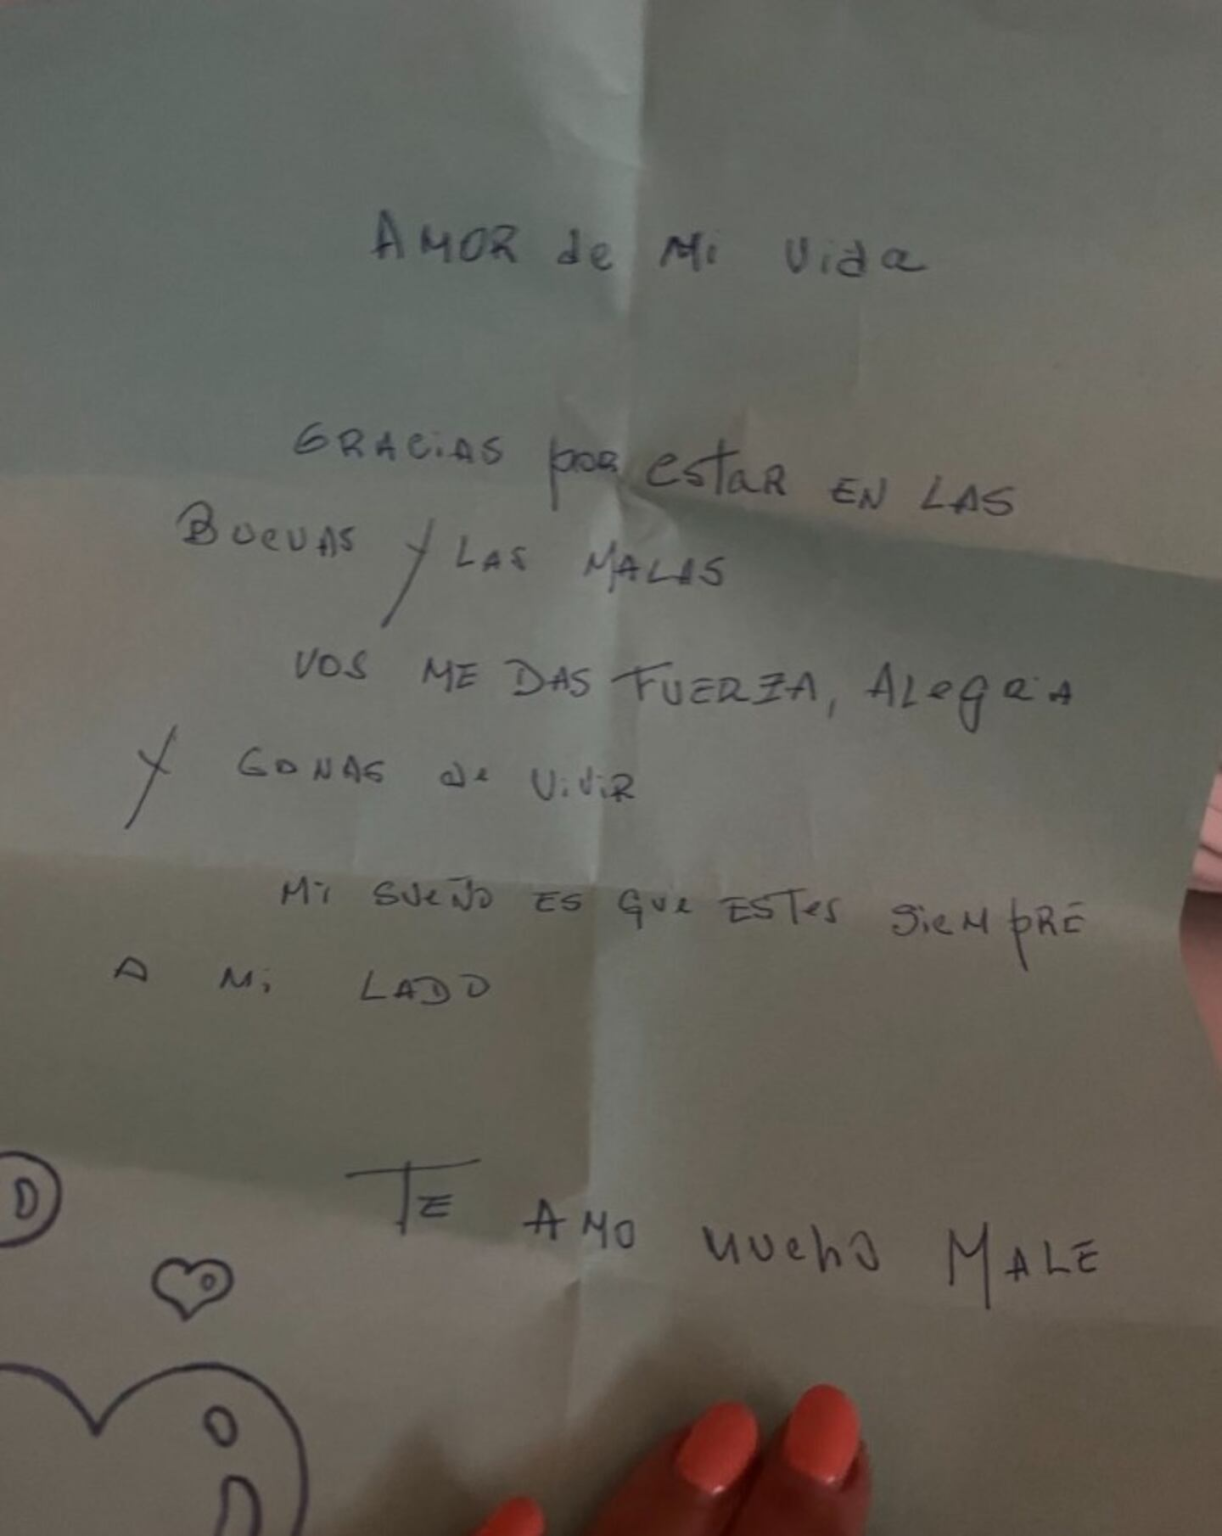 AMOR de Mi vida
GRACiAS por estaR EN LAS
BUeUAS Y LAS MALAS
VOS ME DAS FUERZA, ALegRiA
Y GANAS de ViViR
Mi SUeÑO ES QUe ESTes SieMpRE
A Mi LADO
TE AMO MUchO MALE
D